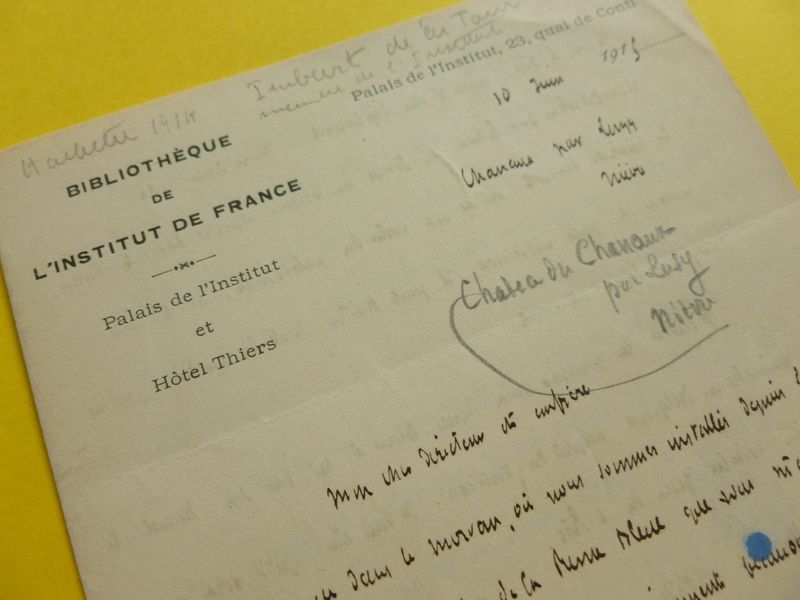 Imbart de la Tour
membre de l'Institut
Hachette 1914
Palais de l'Institut, 23, quai de Conti
BIBLIOTHÈQUE
DE
L'INSTITUT DE FRANCE
Palais de l'Institut
et
Hôtel Thiers
10 Juin 1915
Chanaux par Luzy
Nièvre
Chateau du Chanaux
par Luzy
Nièvre
Mon cher directeur et confrère
dans le Morvan, où nous sommes installés depuis
de la Revue Bleue que vous m'a